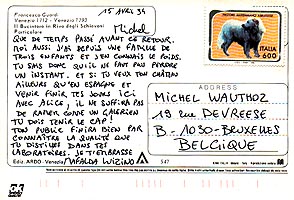 15 AVRIL 94
Francesco Guardi
Venezia 1712 - Venezia 1793
Il Bucintoro in Riva degli Schiavoni
Particolare
Michel,
QUE DE TEMPS PASSÉ AVANT CE RETOUR.
MOI AUSSI J'AI DEPUIS UNE FAMILLE DE
TROIS ENFANTS ET J'EN CONNAIS LE POIDS.
TU SAIS DONC QU'IL NE FAUT PAS PERDRE
UN INSTANT. ET SI TU VEUX TON CHÂTEAU
AILLEURS QU'EN ESPAGNE ET
VENIR FINIR TES JOURS ICI
AVEC ALICE, IL NE SUFFIRA PAS
DE RAPER COMME UN GALÉRIEN
TU DOIS TENIR LE CAP!
TON PUBLIC FINIRA BIEN PAR
CONNAÎTRE LA QUALITÉ QUE
TU DISTILLES DANS TES
LABORATOIRES. JE T'EMBRASSE
MAFALDA WIZINO
Ediz. ARDO - Venezia
547
ITALIA
600
ADDRESS
MICHEL WAUTHOZ
19 RUE DEVREESE
B - 1050 - BRUXELLES
BELGIQUE